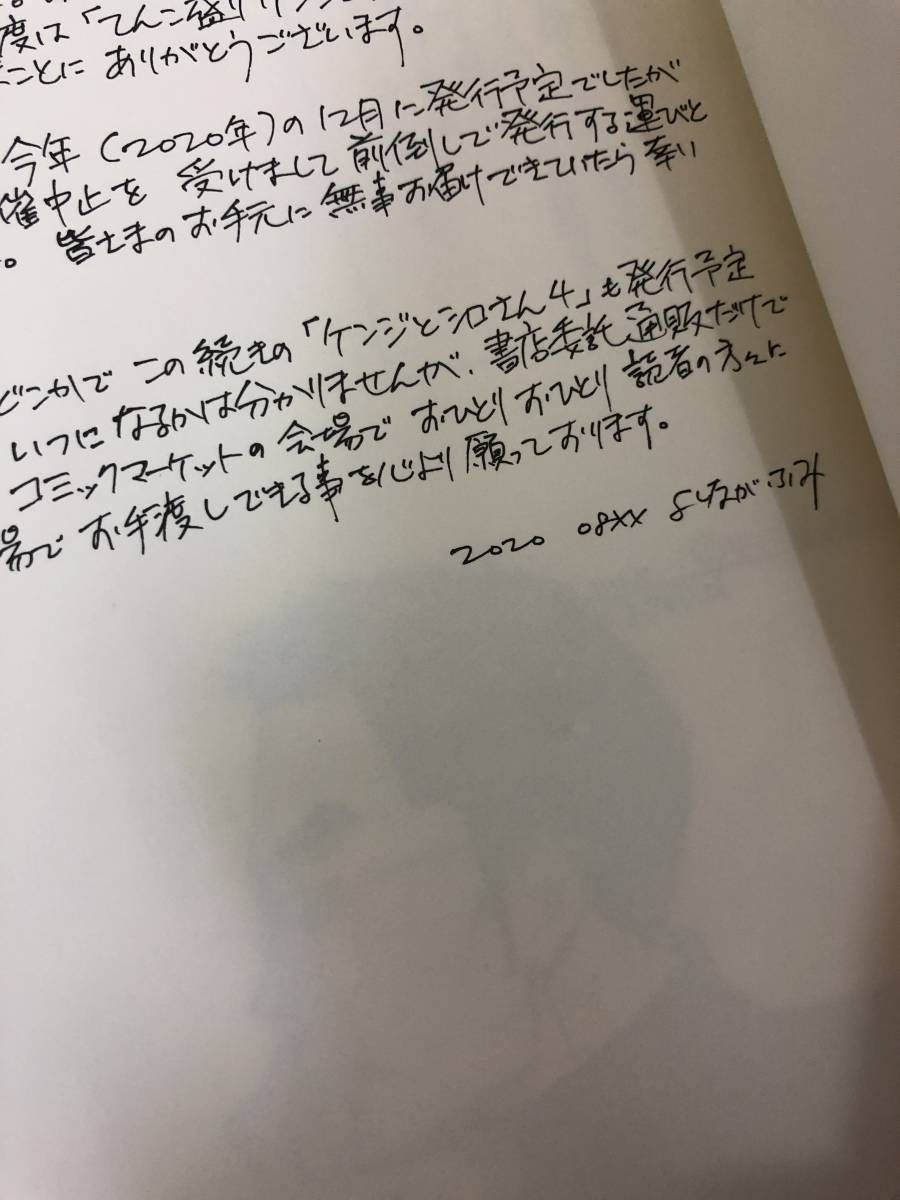 度は「てんこ盛りケンジ
ことに ありがとうございます。
今年(2020年)の12月に発行予定でしたが
催中止を 受けまして前倒しで発行する運びと
。 皆さまのお手元に無事お届けできていたら幸い
どこかで この続きの「ケンジとシロさん4」も発行予定
いつになるかは分かりませんが、書店委託通販だけで
コミックマーケットの会場で おひとりおひとり 読者の方々に
場で お手渡しできる事を心より願っております。
2020 08xx よしながふみ